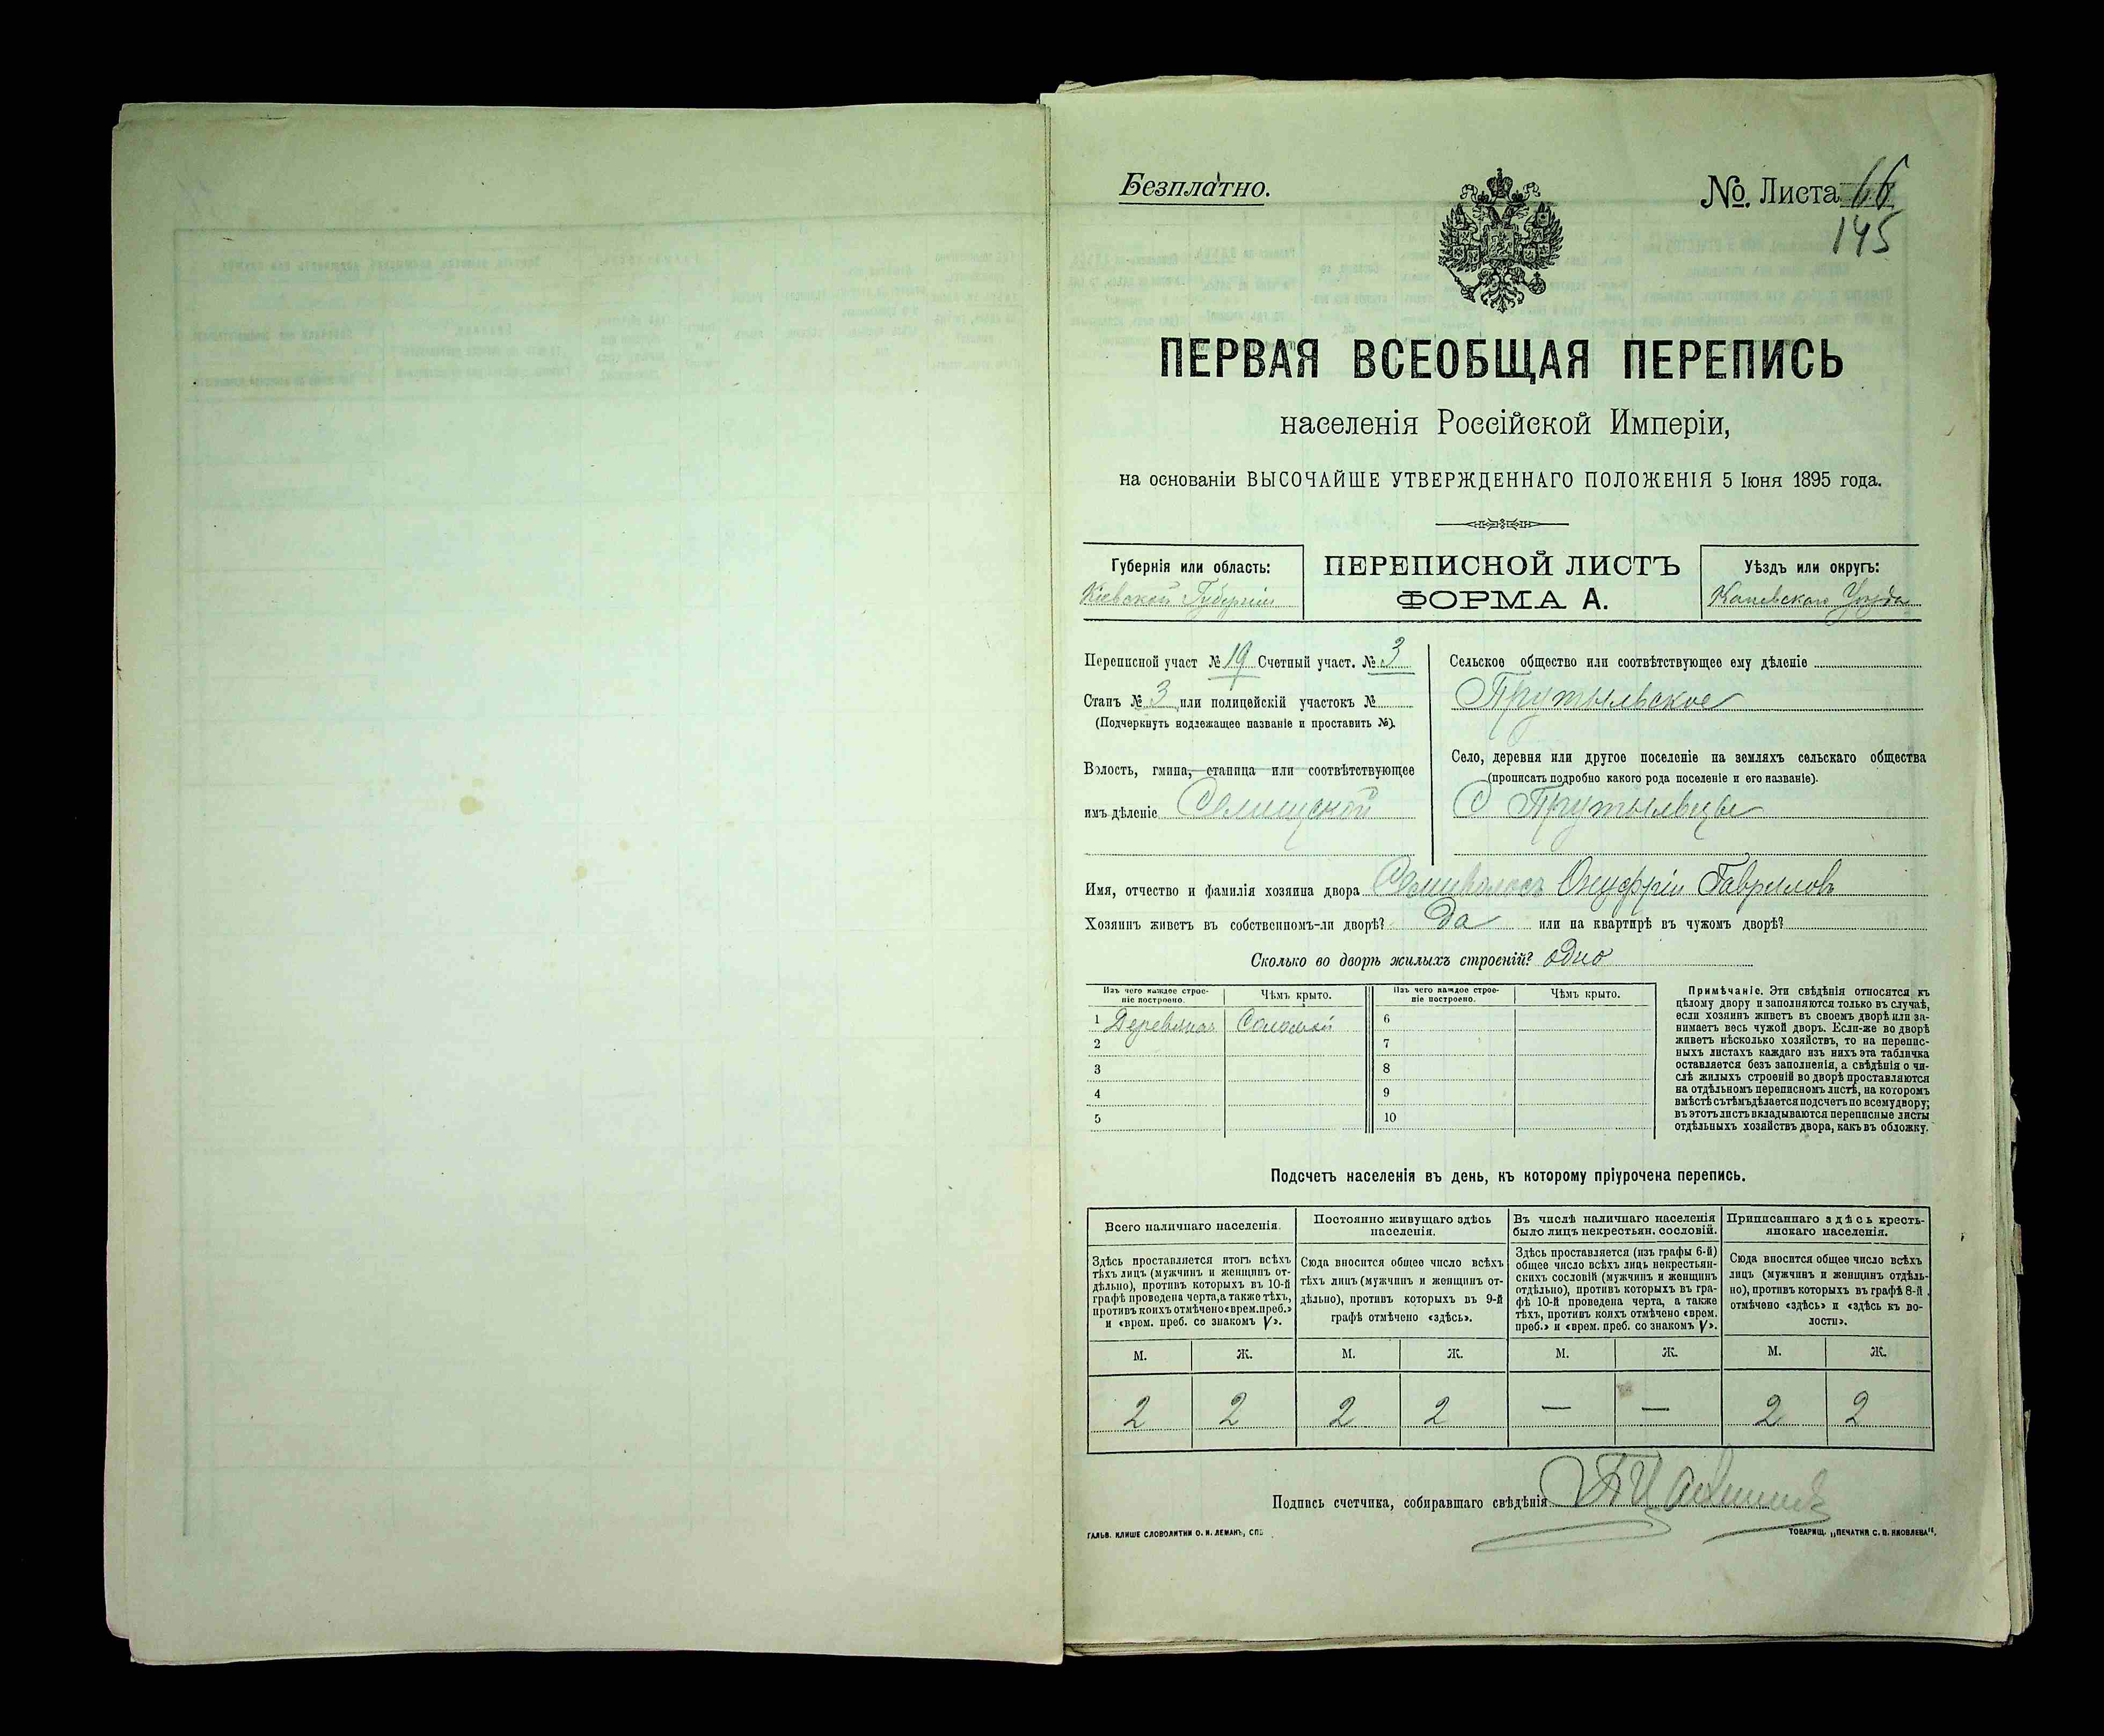 Безплатно.
№. Листа 66
145
ПЕРВАЯ ВСЕОБЩАЯ ПЕРЕПИСЬ
населенія Россійской Имперіи,
на основаніи ВЫСОЧАЙШЕ УТВЕРЖДЕННАГО ПОЛОЖЕНІЯ 5 Іюня 1895 года.
Губернія или область:
Кіевской Губерніи
ПЕРЕПИСНОЙ ЛИСТЪ
ФОРМА А.
Уѣздъ или округъ:
Каневскаго Уѣзда
Переписной участ № 19 Счетный участ. № 3
Станъ № 3 или полицейскій участокъ №
(Подчеркнуть подлежащее названіе и проставить №).
Волость, гмина, станица или соотвѣтствующее
имъ дѣленіе Селищской
Сельское общество или соотвѣтствующее ему дѣленіе
Прутыльское
Село, деревня или другое поселеніе на земляхъ сельскаго общества
(прописать подробно какого рода поселеніе и его названіе).
С Прутыльцы
Имя, отчество и фамилія хозяина двора Семиволосъ Онуфрій Гавриловъ
Хозяинъ живетъ въ собственномъ-ли дворѣ? Да или на квартирѣ въ чужомъ дворѣ?
Сколько во дворѣ жилыхъ строеній? одно
Изъ чего каждое строе-
ніе построено.
Чѣмъ крыто.
Изъ чего каждое строе-
ніе построено.
Чѣмъ крыто.
1 Деревянная Соломой 6
2 7
3 8
4 9
5 10
Примѣчаніе. Эти свѣдѣнія относятся къ
цѣлому двору и заполняются только въ случаѣ,
если хозяинъ живетъ въ своемъ дворѣ или за-
нимаетъ весь чужой дворъ. Если-же во дворѣ
живетъ нѣсколько хозяйствъ, то на перепис-
ныхъ листахъ каждаго изъ нихъ эта табличка
оставляется безъ заполненія, а свѣдѣнія о чи-
слѣ жилыхъ строеній во дворѣ проставляются
на отдѣльномъ переписномъ листѣ, на которомъ
вмѣстѣ съ тѣмъ дѣлается подсчетъ по всему двору;
въ этотъ листъ вкладываются переписные листы
отдѣльныхъ хозяйствъ двора, какъ въ обложку.
Подсчетъ населенія въ день, къ которому пріурочена перепись.
Всего наличнаго населенія.
Здѣсь проставляется итогъ всѣхъ
тѣхъ лицъ (мужчинъ и женщинъ от-
дѣльно), противъ которыхъ въ 10-й
графѣ проведена черта, а также тѣхъ,
противъ коихъ отмѣчено «врем. преб.»
и «врем. преб. со знакомъ V».
Постоянно живущаго здѣсь
населенія.
Сюда вносится общее число всѣхъ
тѣхъ лицъ (мужчинъ и женщинъ от-
дѣльно), противъ которыхъ въ 9-й
графѣ отмѣчено «здѣсь».
Въ числѣ наличнаго населенія
было лицъ некрестьян. сословій.
Здѣсь проставляется (изъ графы 6-й)
общее число всѣхъ лицъ некрестьян-
скихъ сословій (мужчинъ и женщинъ
отдѣльно), противъ которыхъ въ гра-
фѣ 10-й проведена черта, а также
тѣхъ, противъ коихъ отмѣчено «врем.
преб.» и «врем. преб. со знакомъ V».
Приписаннаго здѣсь кресть-
янскаго населенія.
Сюда вносится общее число всѣхъ
лицъ (мужчинъ и женщинъ отдѣль-
но), противъ которыхъ въ графѣ 8-й
отмѣчено «здѣсь» и «здѣсь къ во-
лости».
М. Ж. М. Ж. М. Ж. М. Ж.
2 2 2 2 — — 2 2
Подпись счетчика, собиравшаго свѣдѣнія
ГАЛЬВ. КЛИШЕ СЛОВОЛИТНИ О. И. ЛЕМАНЪ, СПБ
ТОВАРИЩ. „ПЕЧАТНЯ С. П. ЯКОВЛЕВА".